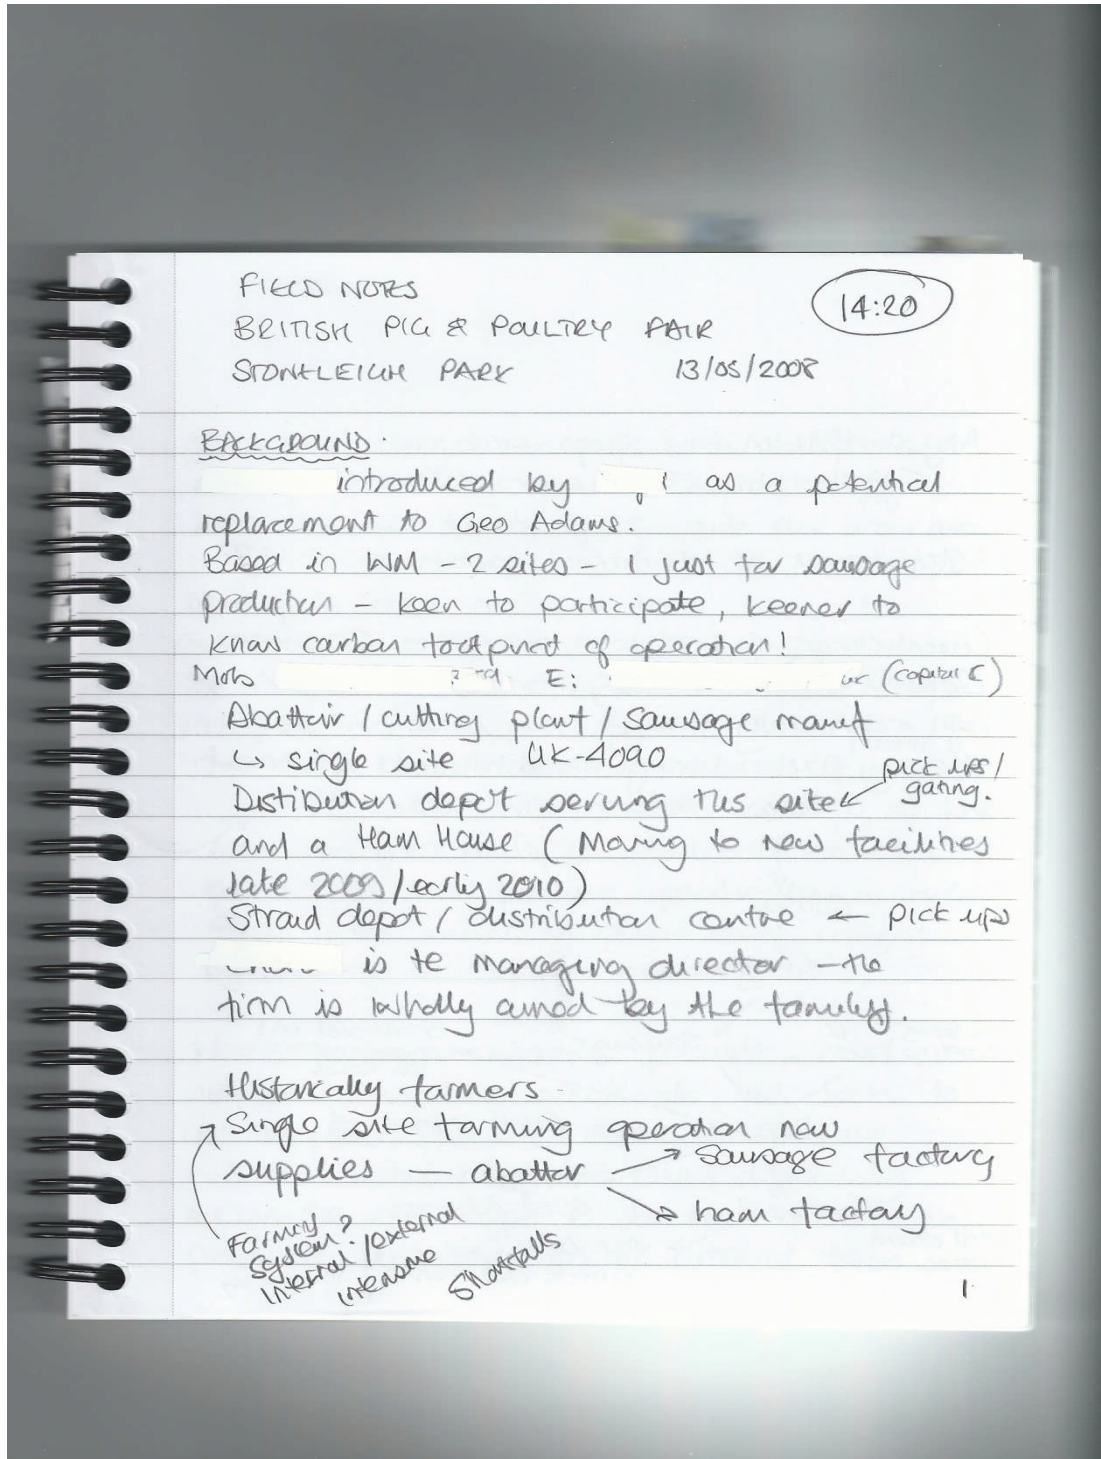 FIELD NOTES
14:20
BRITISH PIG & POULTRY FAIR
STONELEIGH PARK 13/05/2008
BACKGROUND.
introduced by as a potential
replacement to Geo Adams.
Based in WM - 2 sites - 1 just for sausage
production - keen to participate, keener to
know carbon footprint of operation!
Mob E: uk (capital C)
Abattoir / cutting plant / sausage manuf
↳ single site UK-4090
pick ups/
Distibution depot serving this site ↙ gating.
and a Ham House (Moving to new facilities
late 2009/early 2010)
Stroud depot / distribution centre ← pick ups
is te managing director - the
firm is wholly owned by the family.
Historically farmers -
Single site farming operation now
supplies — abattor → sausage factory
→ ham factory
Farming
system?
internal/external
intensive
Shortfalls
1